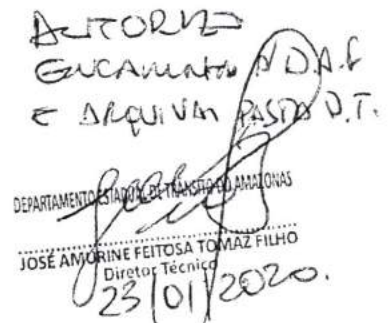 AUTORIZO
ENCAMINHAR A D.A.F
E ARQUIVAR PASTA D.T.
DEPARTAMENTO ESTADUAL DE TRÂNSITO DO AMAZONAS
JOSÉ AMORINE FEITOSA TOMAZ FILHO
Diretor Técnico
23/01/2020.